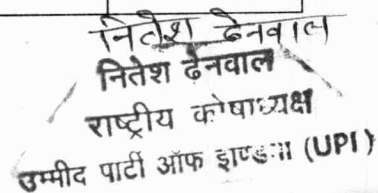 नितेश ढेनवाल
नितेश ढेनवाल
राष्ट्रीय कोषाध्यक्ष
उम्मीद पार्टी ऑफ इण्डिया (UPI)